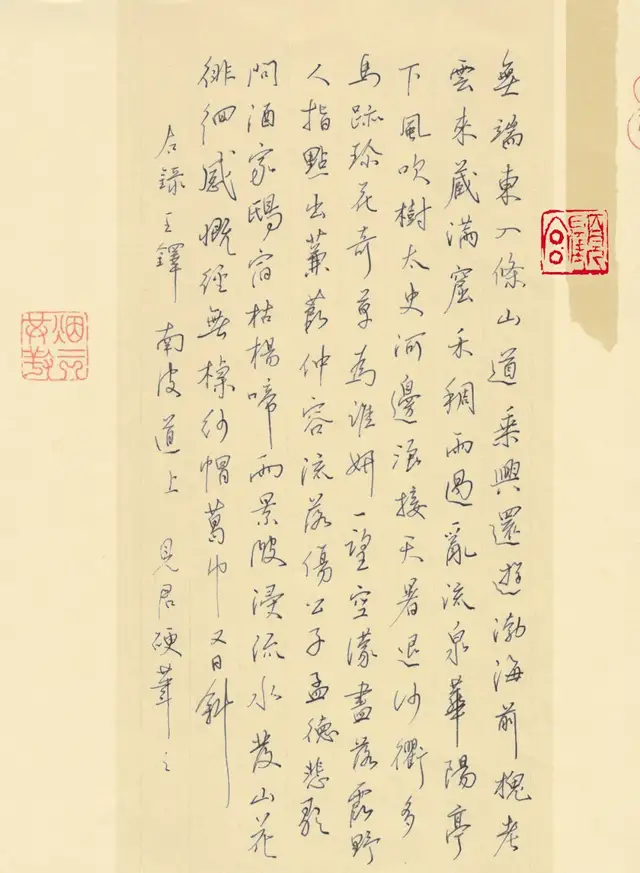 無端東入條山道乘興還遊渤海前槐老
雲來藏滿窟禾稠雨過亂流泉華陽亭
下風吹樹太史河邊浪接天暑退沙衢多
馬跡珍花奇草為誰妍一望空濛盡落霞野
人指點出蒹葭仲容流落傷公子孟德悲歌
問酒家鴟宿枯楊啼雨景陂浸流水發山花
徘徊感慨經無紗帽葛巾又日斜
右錄王鐸 南皮道上 見君硬筆